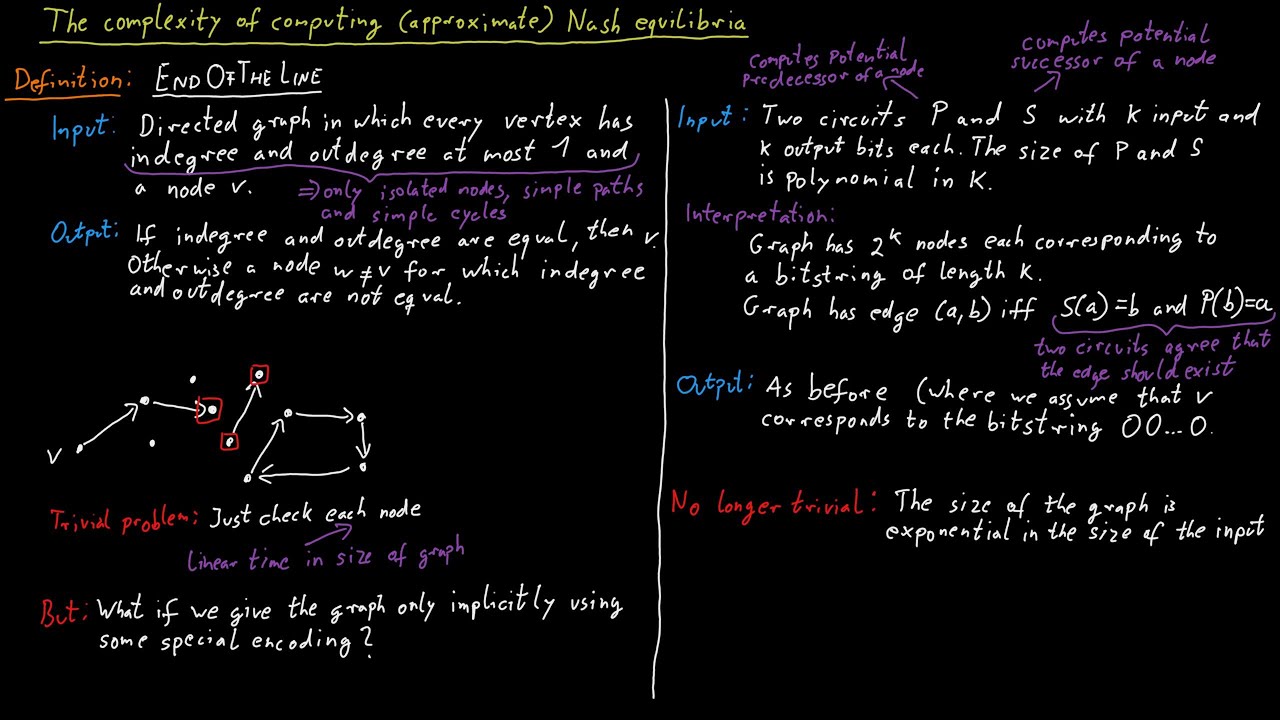 The complexity of computing (approximate) Nash equilibria
Definition: END OF THE LINE
Input: Directed graph in which every vertex has
indegree and outdegree at most 1 and
a node v. ⇒ only isolated nodes, simple paths
and simple cycles
Output: If indegree and outdegree are equal, then v.
Otherwise a node w ≠ v for which indegree
and outdegree are not equal.
v
Trivial problem: Just check each node
linear time in size of graph
But: What if we give the graph only implicitly using
some special encoding?
computes potential
predecessor of a node
computes potential
successor of a node
Input: Two circuits P and S with k input and
k output bits each. The size of P and S
is polynomial in k.
Interpretation:
Graph has 2^k nodes each corresponding to
a bitstring of length k.
Graph has edge (a,b) iff S(a)=b and P(b)=a
two circuits agree that
the edge should exist
Output: As before (where we assume that v
corresponds to the bitstring 00...0.
No longer trivial: The size of the graph is
exponential in the size of the input